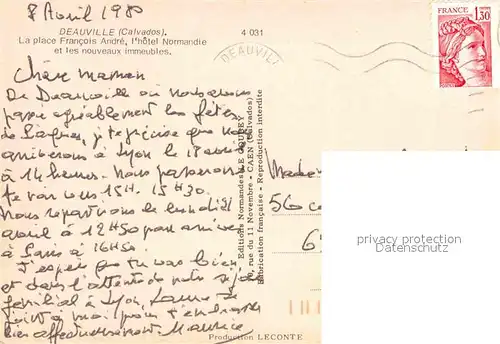 8 Avril 1980
DEAUVILLE (Calvados).
La place François André, l'hôtel Normandie
et les nouveaux immeubles.
4 031
DEAUVILLE
FRANCE
1,30
Chère maman
De Deauville où nous avons
passé agréablement les fêtes
de Pâques, je te précise que nous
arriverons à Lyon le
à 14 heures. Nous passerons
te voir vers 15H. 15H30.
Nous repartirons le lundi 21
avril à 12H50 pour arriver
à Paris à 16H50.
J'espère que tu vas bien
et dans l'attente de notre séjour
familial à Lyon,
à moi pour t'embrasser
bien affectueusement Maurice
Editions Normandes LE GOUBEY
rue du 11 Novembre - CAEN (Calvados)
Fabrication française - Reproduction interdite
Madame
56
6
privacy protection
AnsichtskartenKaiser.de
Production LECONTE